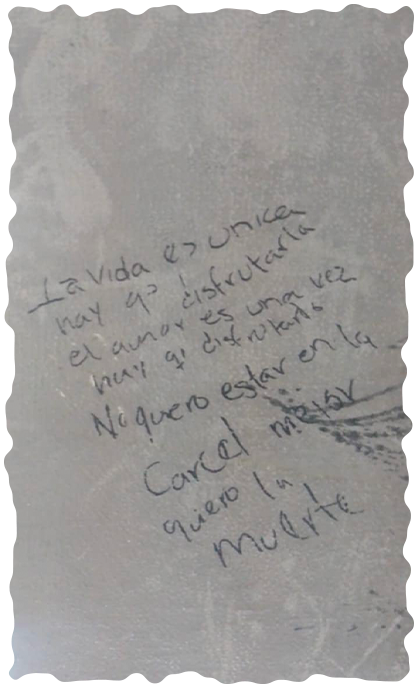 La vida es unica
hay q' disfrutarla
el amor es una vez
hay q' disfrutarlo
No quero estar en la
Carcel mejor
quiero la
muerte